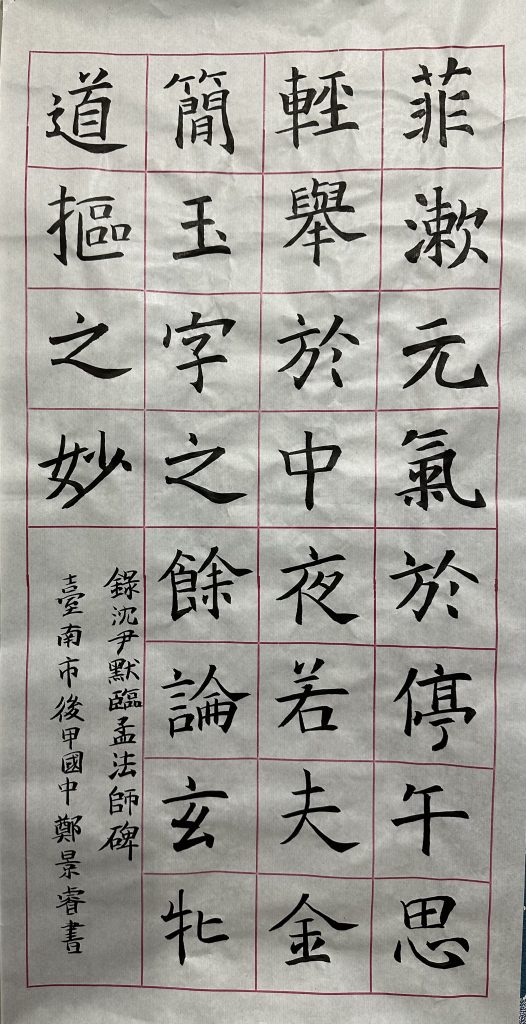 菲漱元氣於停午思
輕舉於中夜若夫金
簡玉字之餘論玄牝
道摳之妙
錄沈尹默臨孟法師碑
臺南市後甲國中鄭景睿書